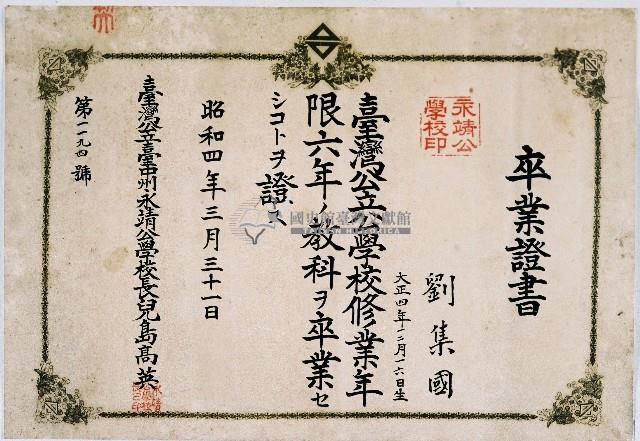 卒業證書
永靖公學校印
劉集國
大正四年十二月一六日生
臺灣公立公學校修業年
限六年ノ教科ヲ卒業セ
シコトヲ證ス
昭和四年三月三十一日
臺灣公立臺中州永靖公學校長兒島高英
第一一九四號
國史館臺灣文獻館
TAIWAN HISTORICA